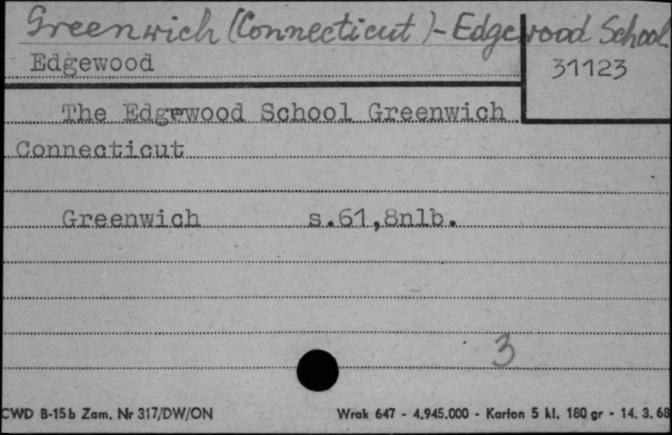 Greenwich (Connecticut) - Edgewood School
Edgewood
31123
The Edgewood School Greenwich
Connecticut
Greenwich s.61,8nlb.
3
CWD B-15b Zam. Nr 317/DW/ON Wrak 647 - 4.945.000 - Karton 5 kl. 180 gr - 14. 3. 68